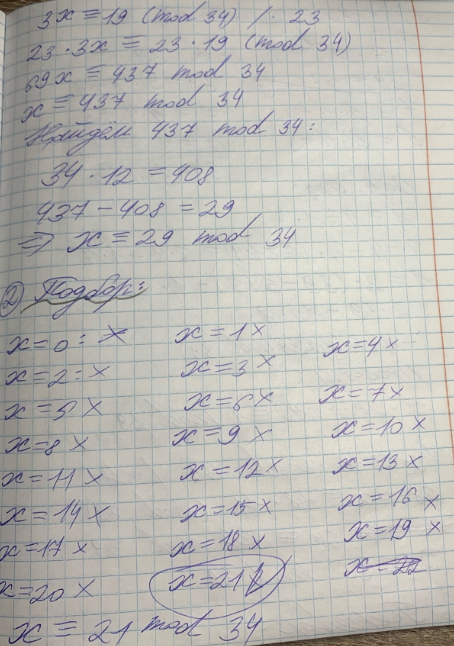 3x ≡ 19 (mod 34) / · 23
23 · 3x ≡ 23 · 19 (mod 34)
69x ≡ 437 mod 34
x ≡ 437 mod 34
Найдём 437 mod 34:
34 · 12 = 408
437 - 408 = 29
⇒ x ≡ 29 mod 34
2) Подбор:
x=0: x x=1 x x=4 x
x=2: x x=3 x
x=5 x x=6 x x=7 x
x=8 x x=9 x x=10 x
x=11 x x=12 x x=13 x
x=14 x x=15 x x=16 x
x=17 x x=18 x x=19 x
x=20 x x=21 V x=22
x ≡ 21 mod 34